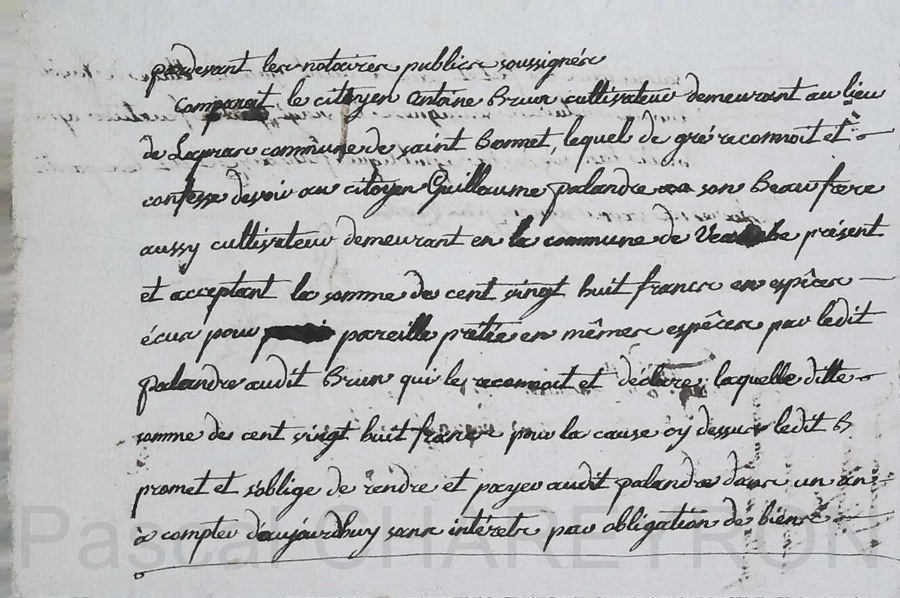 pardevant les notaires publics soussignés
Comparait le citoyen Antoine Brun cultivateur demeurant au lieu
de Lapras commune de saint Bonnet, lequel de gré reconnoit et
confesse devoir au citoyen Guillaume palandre son Beau frere
aussy cultivateur demeurant en la commune de présent
et acceptant la somme de cent vingt huit francs en espêces
écus pour pareille prêtée en mêmes espêces par ledit
palandre audit Brun qui le reconnoit et déclare, laquelle ditte
somme de cent vingt huit francs pour la cause cy dessus ledit B
promet et s'oblige de rendre et payer audit palandre dans un an
a compter d'aujourdhuy sans intérets par obligation de biens
Pascal CHAREYRON